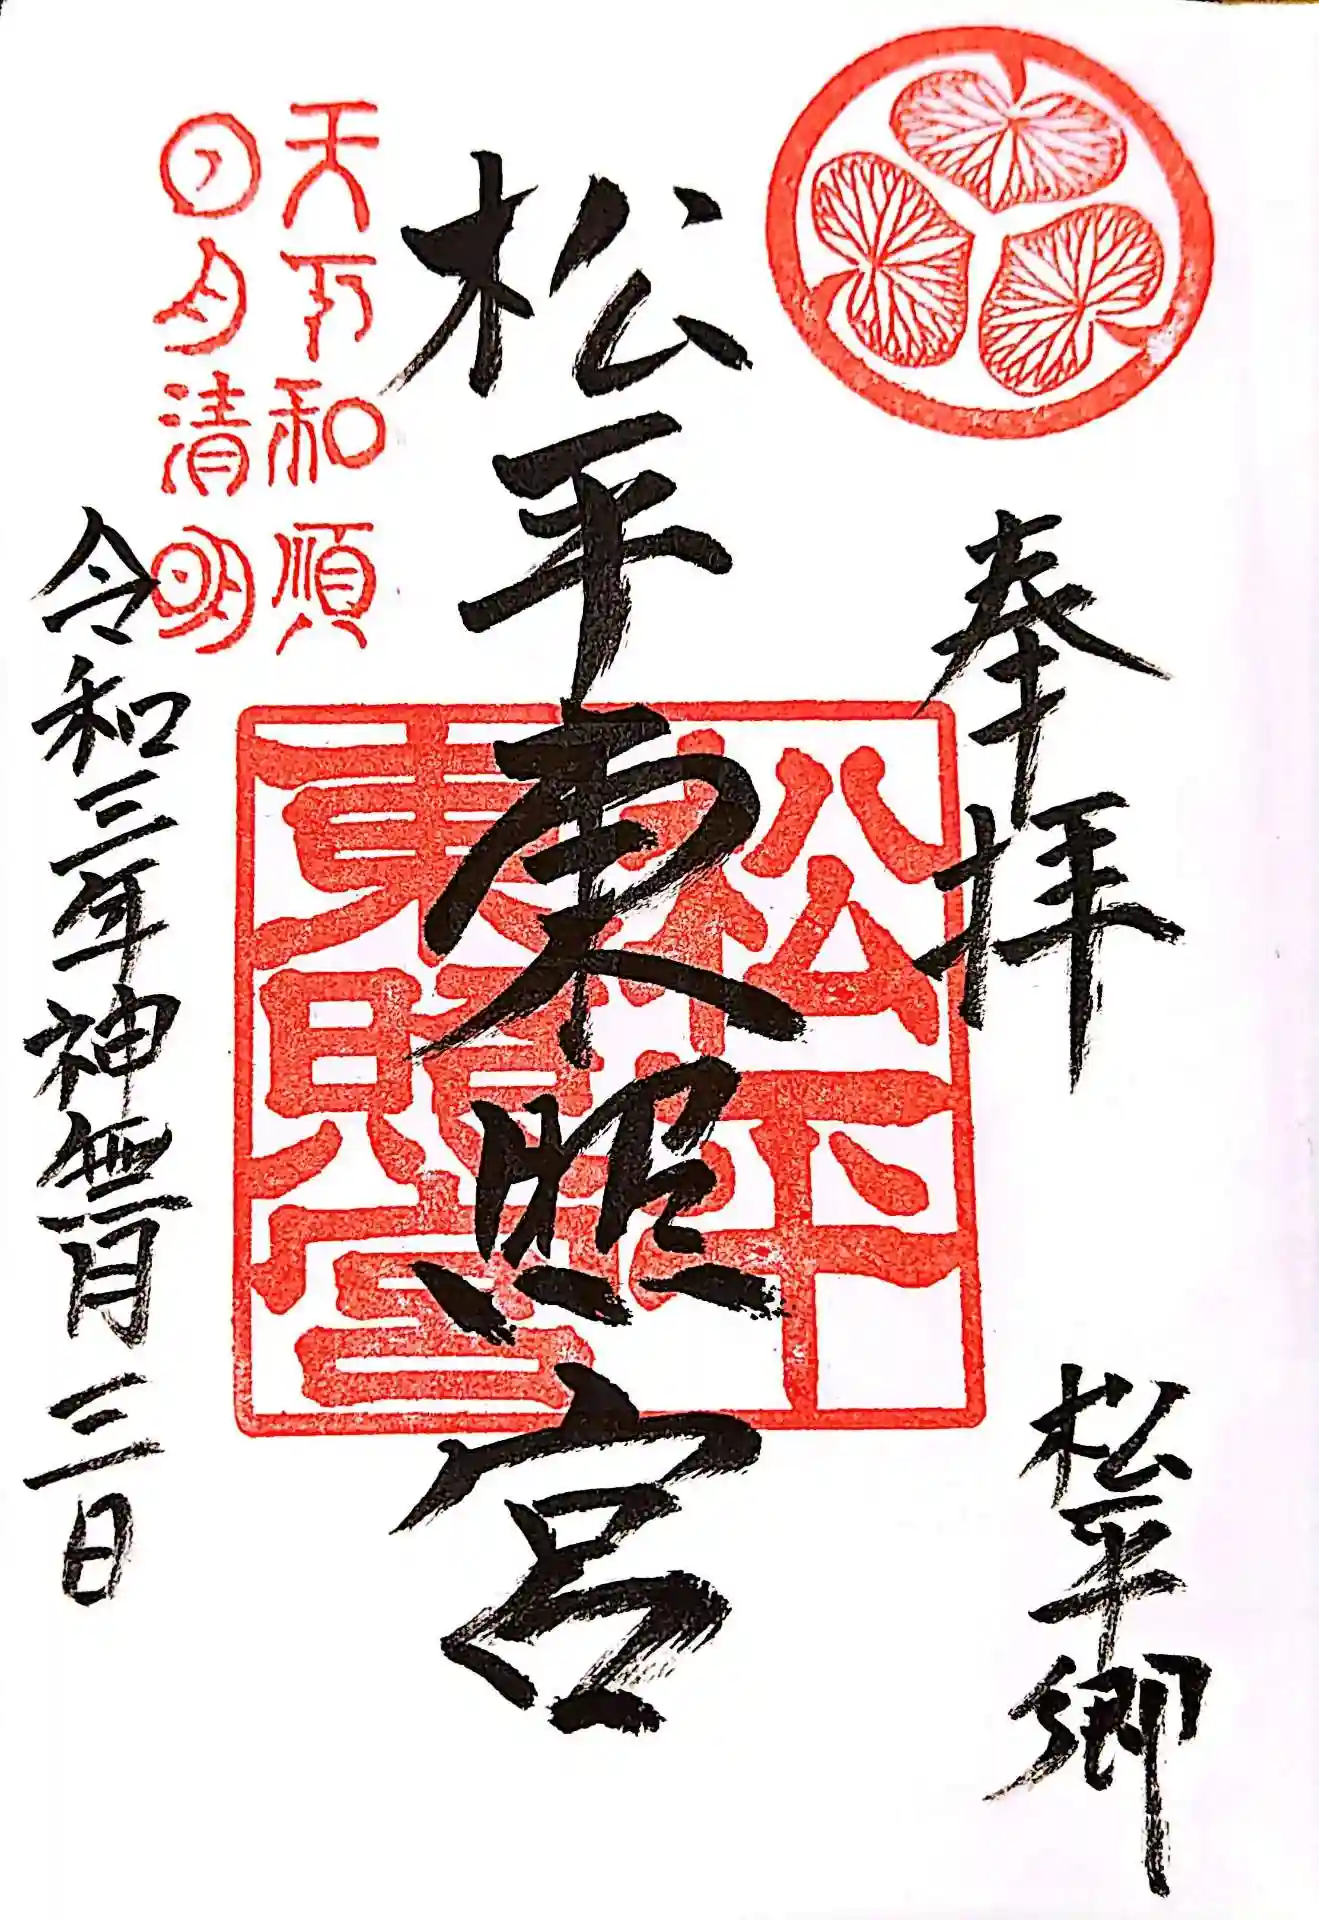 奉拝
松平郷
松平東照宮
松平
東照宮
天下和順
日月清明
令和三年神無月三日